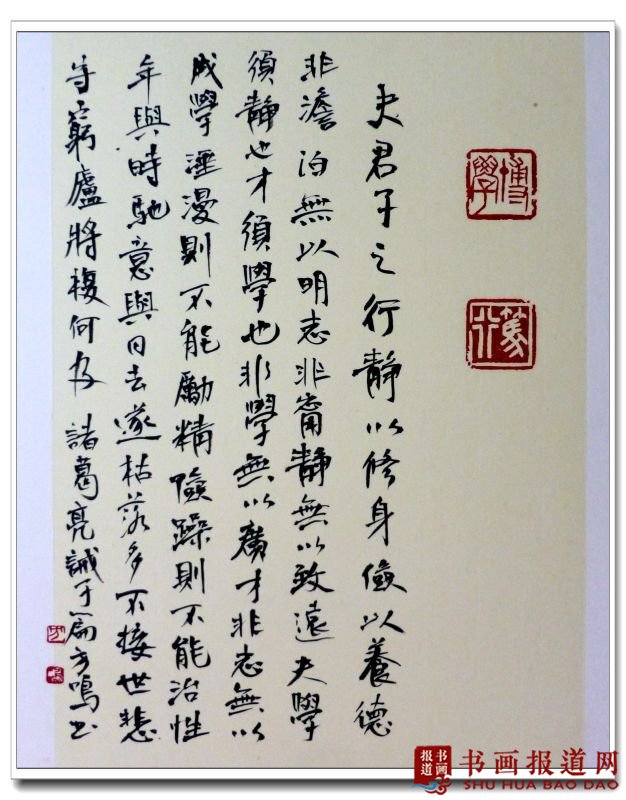 博學
篤行
夫君子之行靜以修身儉以養德
非澹泊無以明志非甯靜無以致遠夫學
須靜也才須學也非學無以廣才非志無以
成學淫漫則不能勵精險躁則不能治性
年與時馳意與日去遂枯落多不接世悲
守窮廬將複何及 諸葛亮誡子篇方鳴書
书画
报道
书画报道网
SHU HUA BAO DAO